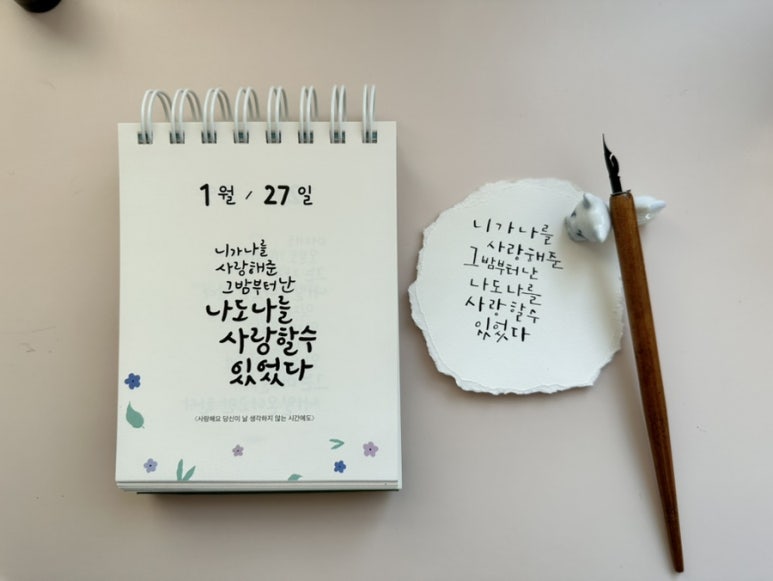 1월 / 27일
니가나를
사랑해준
그밤부터난
나도나를
사랑할수
있었다
<사랑해요 당신이 날 생각하지 않는 시간에도>
니가나를
사랑해준
그밤부터난
나도나를
사랑할수
있었다